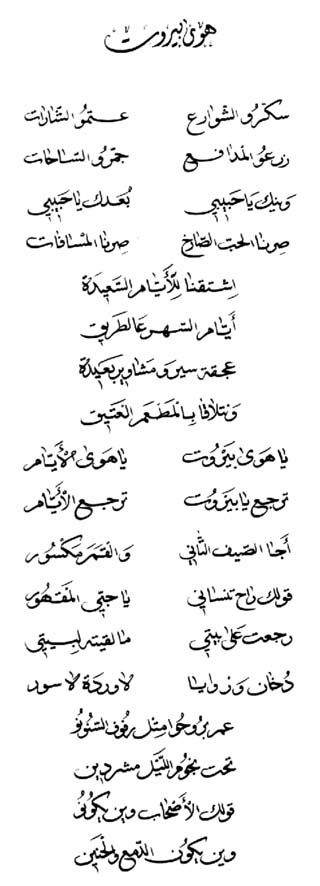 هوى بيروت
سكّرو الشوارع عتمو الشّارات
زرعو المدافع هجّرو السّاحات
وينك يا حبيبي بُعدك يا حبيبي
صرنا الحب الصّارخ صرنا المسافات
إشتقنا للأيّام السّعيدة
أيّام السّهر عالطريق
عجقة سير ومشاوير بعيدة
ونتلاقا بالمطعم العتيق
يا هوى بيروت يا هوى الأيّام
ترجع يا بيروت ترجع الأيّام
أجا الصّيف التّاني والقمر مكسّور
قولك راح تنساني يا حبّي المقهور
رجعت على بيتي مالقيته لبيتي
دخان وزوايا لا وردة لا سور
عم بروحوا متل رفوف السّنونو
تحت نجوم اللّيل مشردين
قولك الأصحاب وين بكونو
وين بكون الدّمع والحنين